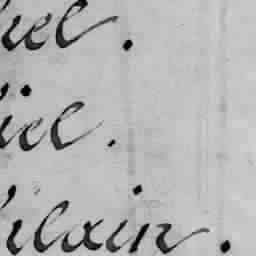 iel.
iel.
ilain.